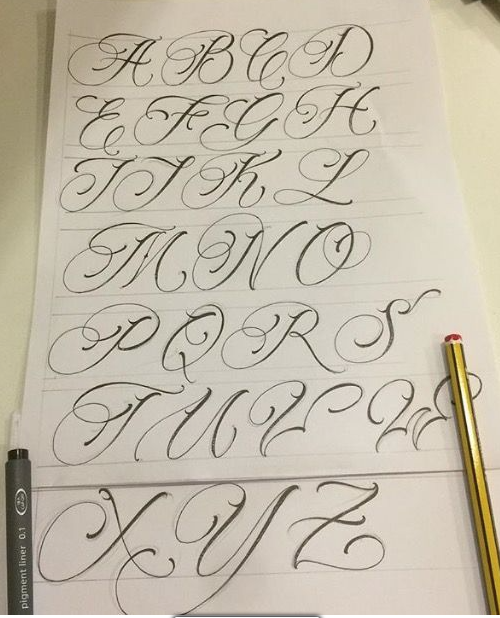 A B C D
E F G H
I J K L
M N O
P Q R S
T U V W
X Y Z
pigment liner 0.1